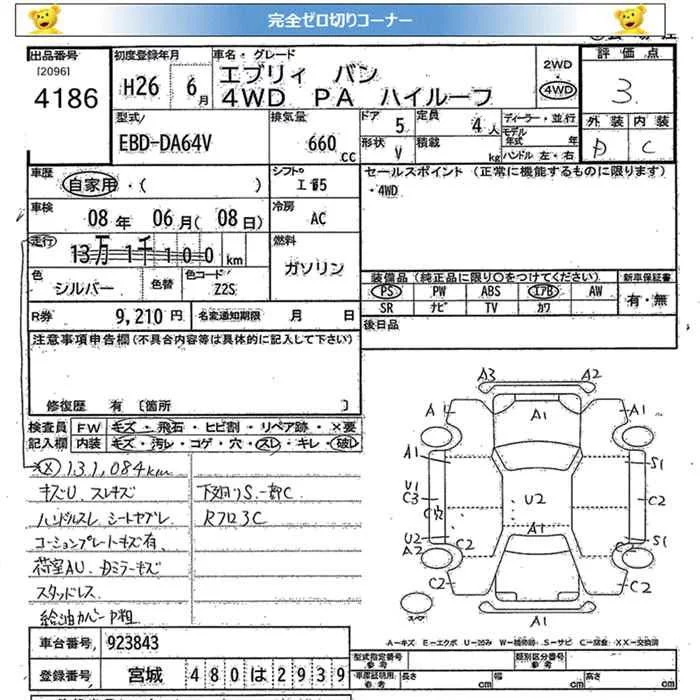 完全ゼロ切りコーナー
出品番号
[2096]
4186
初度登録年月
H26 6月
車名・グレード
エブリィ バン
4WD PA ハイルーフ
2WD
4WD
評価点
3
外装 内装
D C
型式
EBD-DA64V
排気量
660 cc
ドア 5
定員 4人
形状 V
積載 kg
ディーラー・並行
モデル年式 年
ハンドル 左・右
車歴
自家用・( )
シフト
エ 5
セールスポイント (正常に機能するものに限ります)
・4WD
車検
08年 06月(08日)
冷房
AC
走行
13万1千100 km
燃料
ガソリン
色
シルバー
色替
色コード
Z2S
装備品 (純正品に限り○をつけてください)
新車保証書
PS PW ABS エアB AW
有・無
SR ナビ TV カワ
R券 9,210円
名変通知期限 月 日
後日品
注意事項申告欄(不具合内容等は具体的に記入して下さい)
修復歴 有 〔箇所 〕
検査員 FW キズ・飛石・ヒビ割・リペア跡・×要
記入欄 内装 キズ・汚レ・コゲ・穴・スレ・キレ・破レ
131,084km
キズU、スレキズ 下廻りS、一部C
ハンドルスレ シートヤブレ
コーションプレートキズ有
荷室AU
スタッドレス
給油カバー
A3 A2
A A1 A1
A1 S1
U1
C3 U2 C2
U2 A1 S1
A2 C2 C2
C2 C2
A1
A-キズ E-エクボ U-凹み W-補修跡 S-サビ C-腐食 XX-交換済
車台番号 923843
登録番号 宮城 480 は 2939
型式指定番号 参考
類別区分番号 参考
車庫証明用 参考 長さ cm 幅 cm 高さ cm